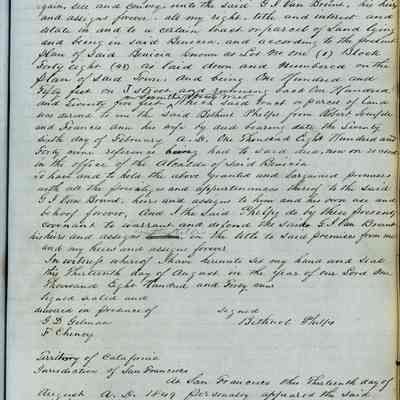 again, sell and convey unto the said G I Van Brunt, his heirs
and assigns forever, all my right, title and interest and
estate in and to a certain lot or parcel of Land lying
and being in said Benicia, and according to the present
plan of said Benicia known as Lot No one (1) Block
Forty eight (48) as laid down and numbered on the
plan of said Town, and being One Hundred and
Fifty feet on I street and running back One Hundred
and Seventy five feet, Which said tract or parcel of Land
was deeded to me the said Bethuel Phelps from Robert Semple
and Francis Ann his wife by deed bearing date the Twenty
sixth day of February A.D. One Thousand Eight Hundred and
Forty nine reference being had to said deed, now on record
in the office of the Alcalde of said Benicia
To have and to hold the above granted and bargained premises
with all the privileges and appurtenances thereof to the said
G. I Van Brunt, heirs and assigns to him and his own use and
behoof forever, And I the said Phelps do by these presents
covenant to warrant and defend the said G I Van Brunt
his heirs and assigns in the title to said premises from me
and my heirs and assigns forever
In witness whereof I have hereunto set my hand and seal
this Thirteenth day of August in the year of our Lord One
Thousand Eight Hundred and Forty nine
Signed sealed and
delivered in presence of signed
G. D. Gelman Bethuel Phelps
F Cheney
Territory of California
Jurisdiction of San Francisco
At San Francisco this Thirteenth day of
August A.D. 1849 personally appeared the said